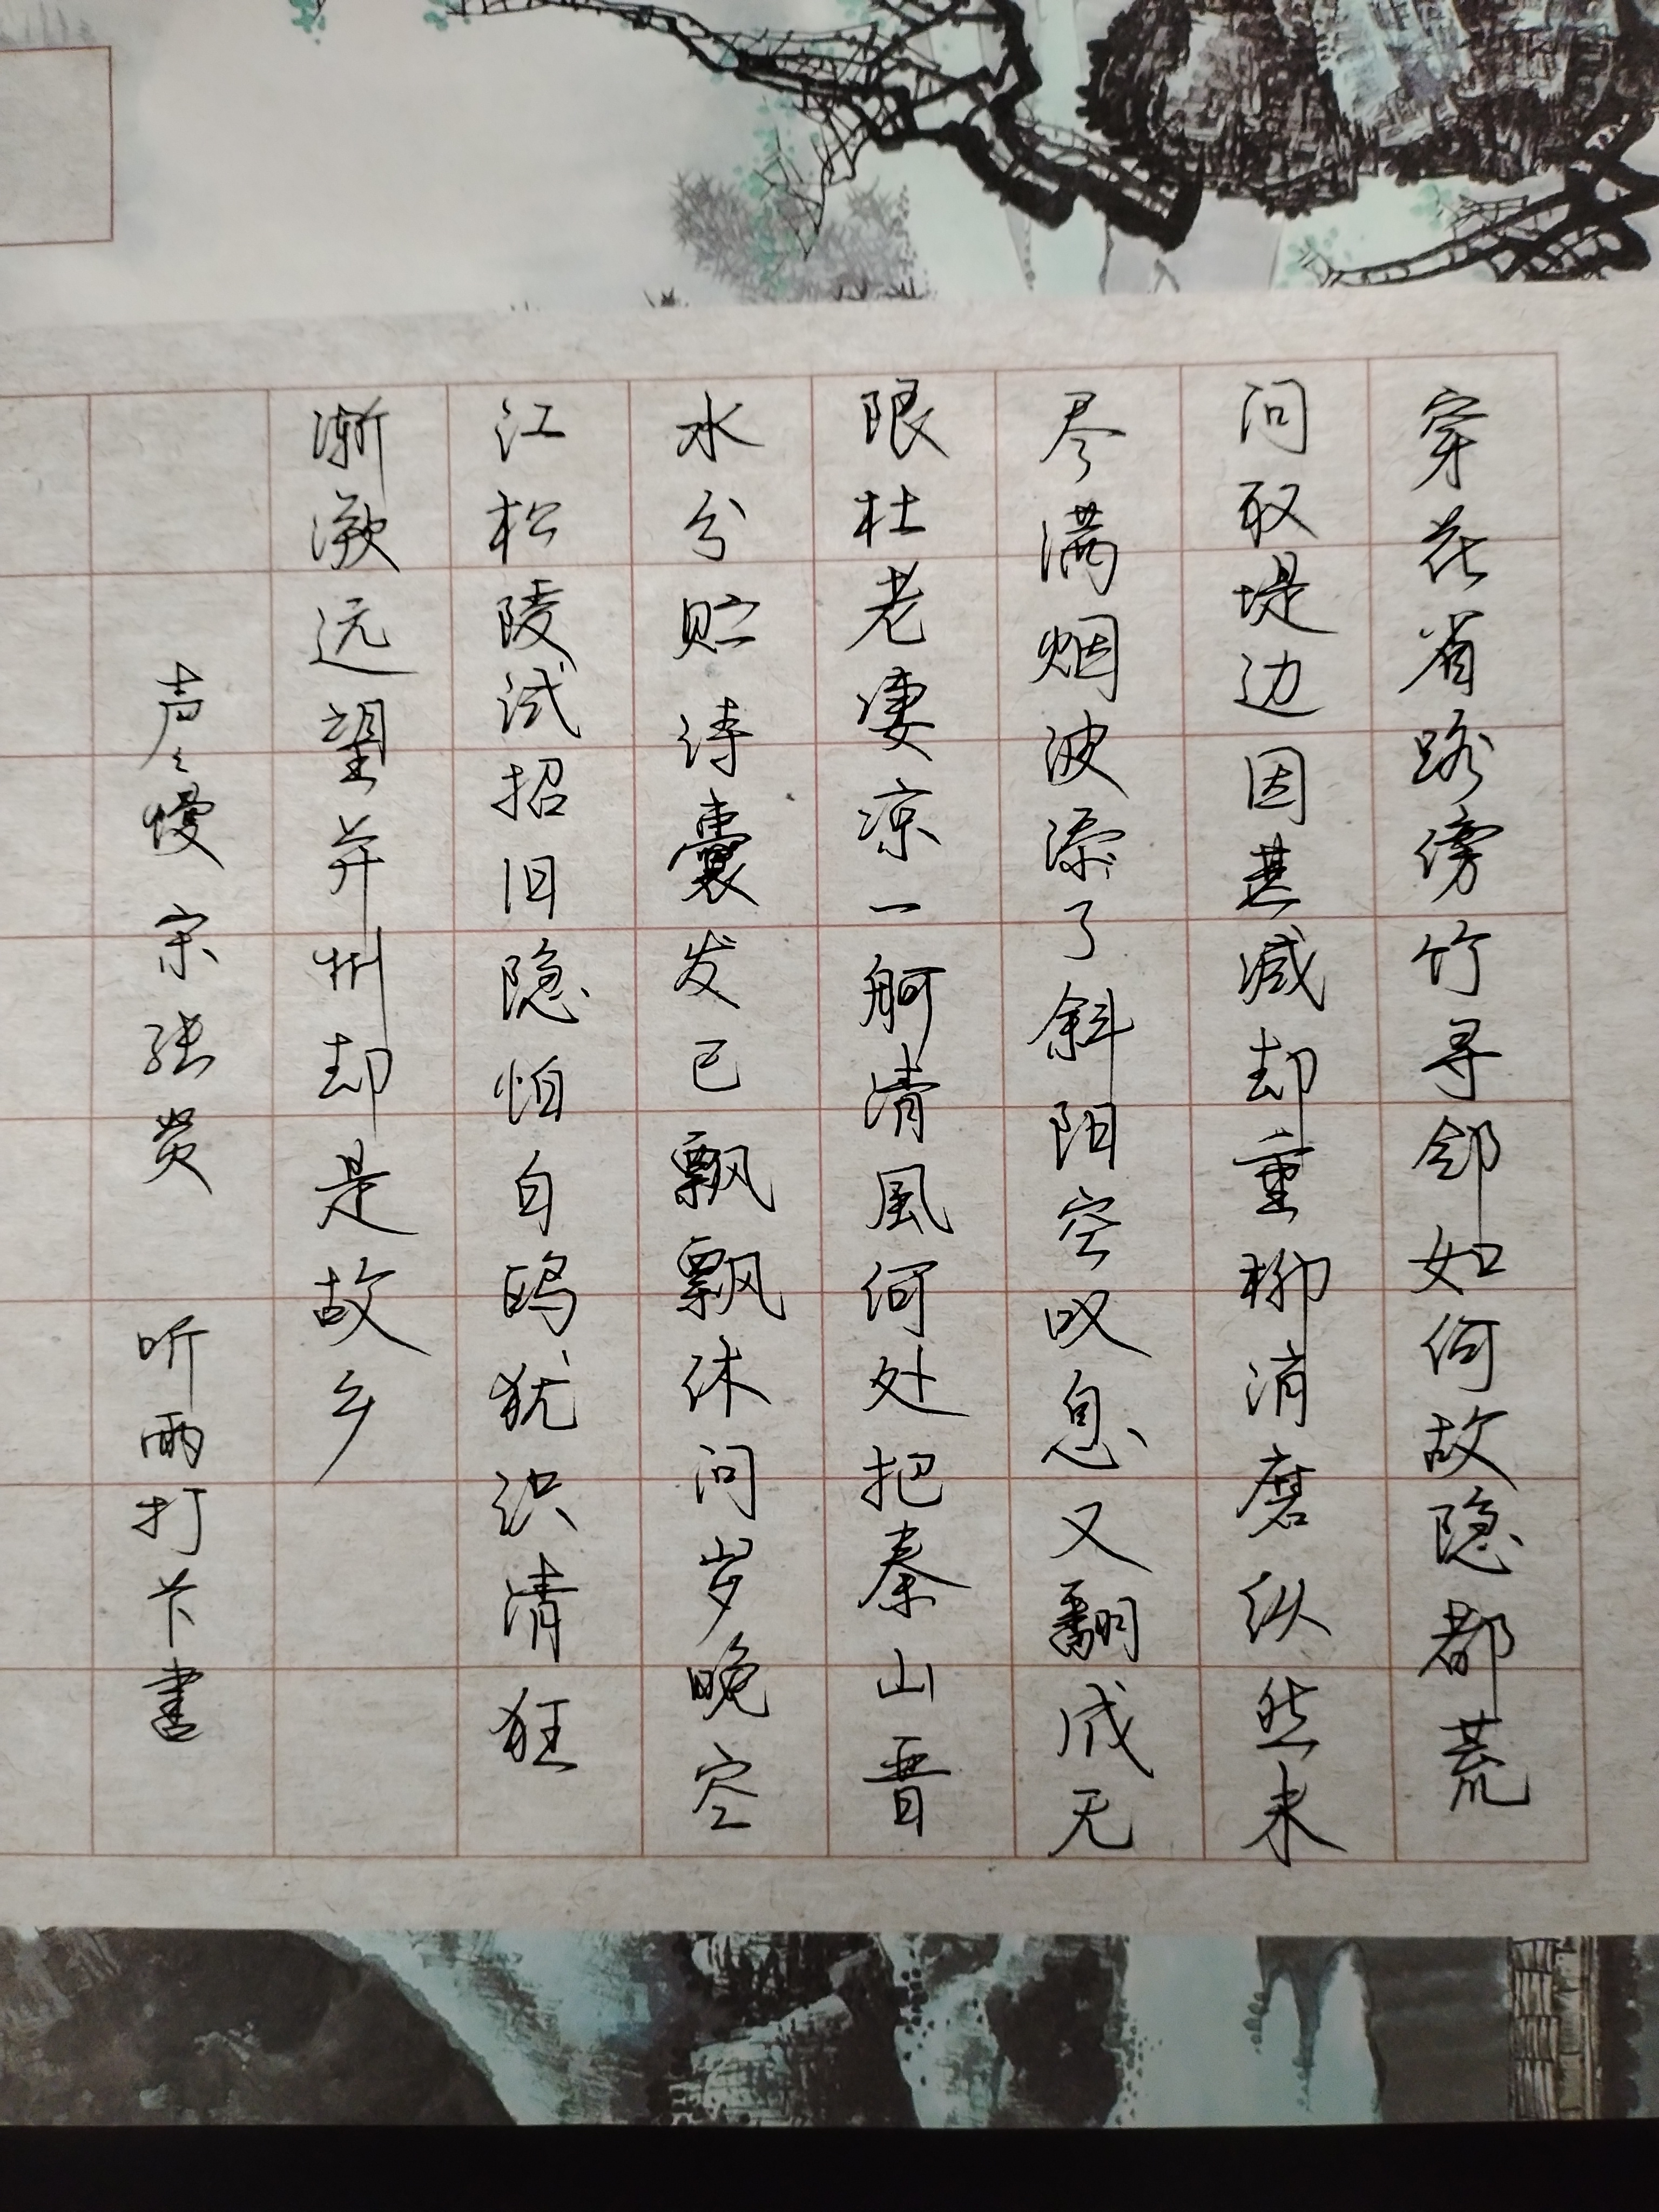 穿花省路傍竹寻邻如何故隐都荒
问取堤边因甚减却垂柳消磨纵然未
尽满烟波添了斜阳空叹息又翻成无
限杜老凄凉一舸清風何处把秦山晋
水分贮诗囊发已飘飘休问岁晚空
江松陵试招旧隐怕白鸥犹识清狂
渐溯远望并州却是故乡
声々慢 宋张炎 听雨打書